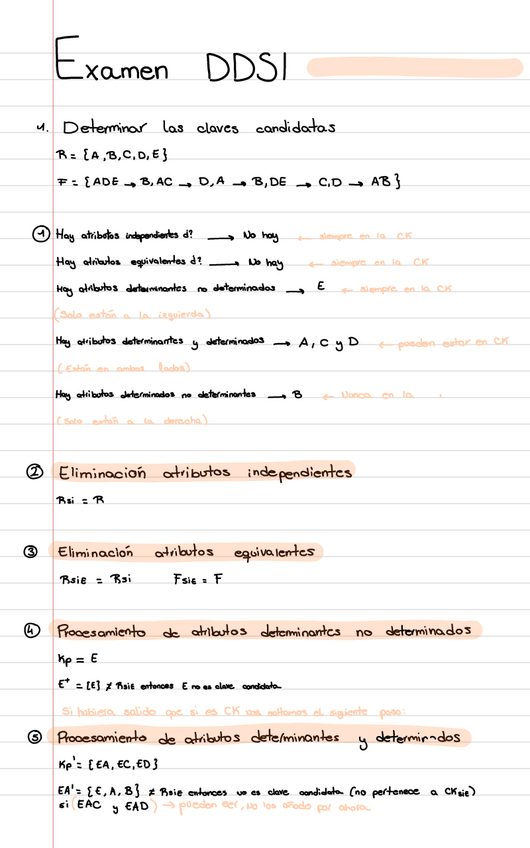 Examen DDSI
4. Determinar las claves candidatas
R = {A,B,C,D,E}
F = {ADE → B, AC → D, A → B, DE → C, D → AB}
① Hay atributos independientes d? → No hay ← siempre en la CK
Hay atributos equivalentes d? → No hay ← siempre en la CK
Hay atributos determinantes no determinados → E ← siempre en la CK
(Solo están a la izquierda)
Hay atributos determinantes y determinados → A, C y D ← pueden estar en CK
(Están en ambos lados)
Hay atributos determinados no determinantes → B ← Nunca en la
(Solo están a la derecha)
② Eliminación atributos independientes
Rsi = R
③ Eliminación atributos equivalentes
RsiE = Rsi FsiE = F
④ Procesamiento de atributos determinantes no determinados
Kp = E
E⁺ = {E} ≠ RsiE entonces E no es clave candidata
Si hubiera salido que si es CK nos saltamos el siguiente paso:
⑤ Procesamiento de atributos determinantes y determinados
Kp' = {EA, EC, ED}
EA' = {E, A, B} ≠ RsiE entonces no es clave candidata (no pertenece a CKsiE)
si (EAC y EAD) → pueden ser, No los añado por ahora